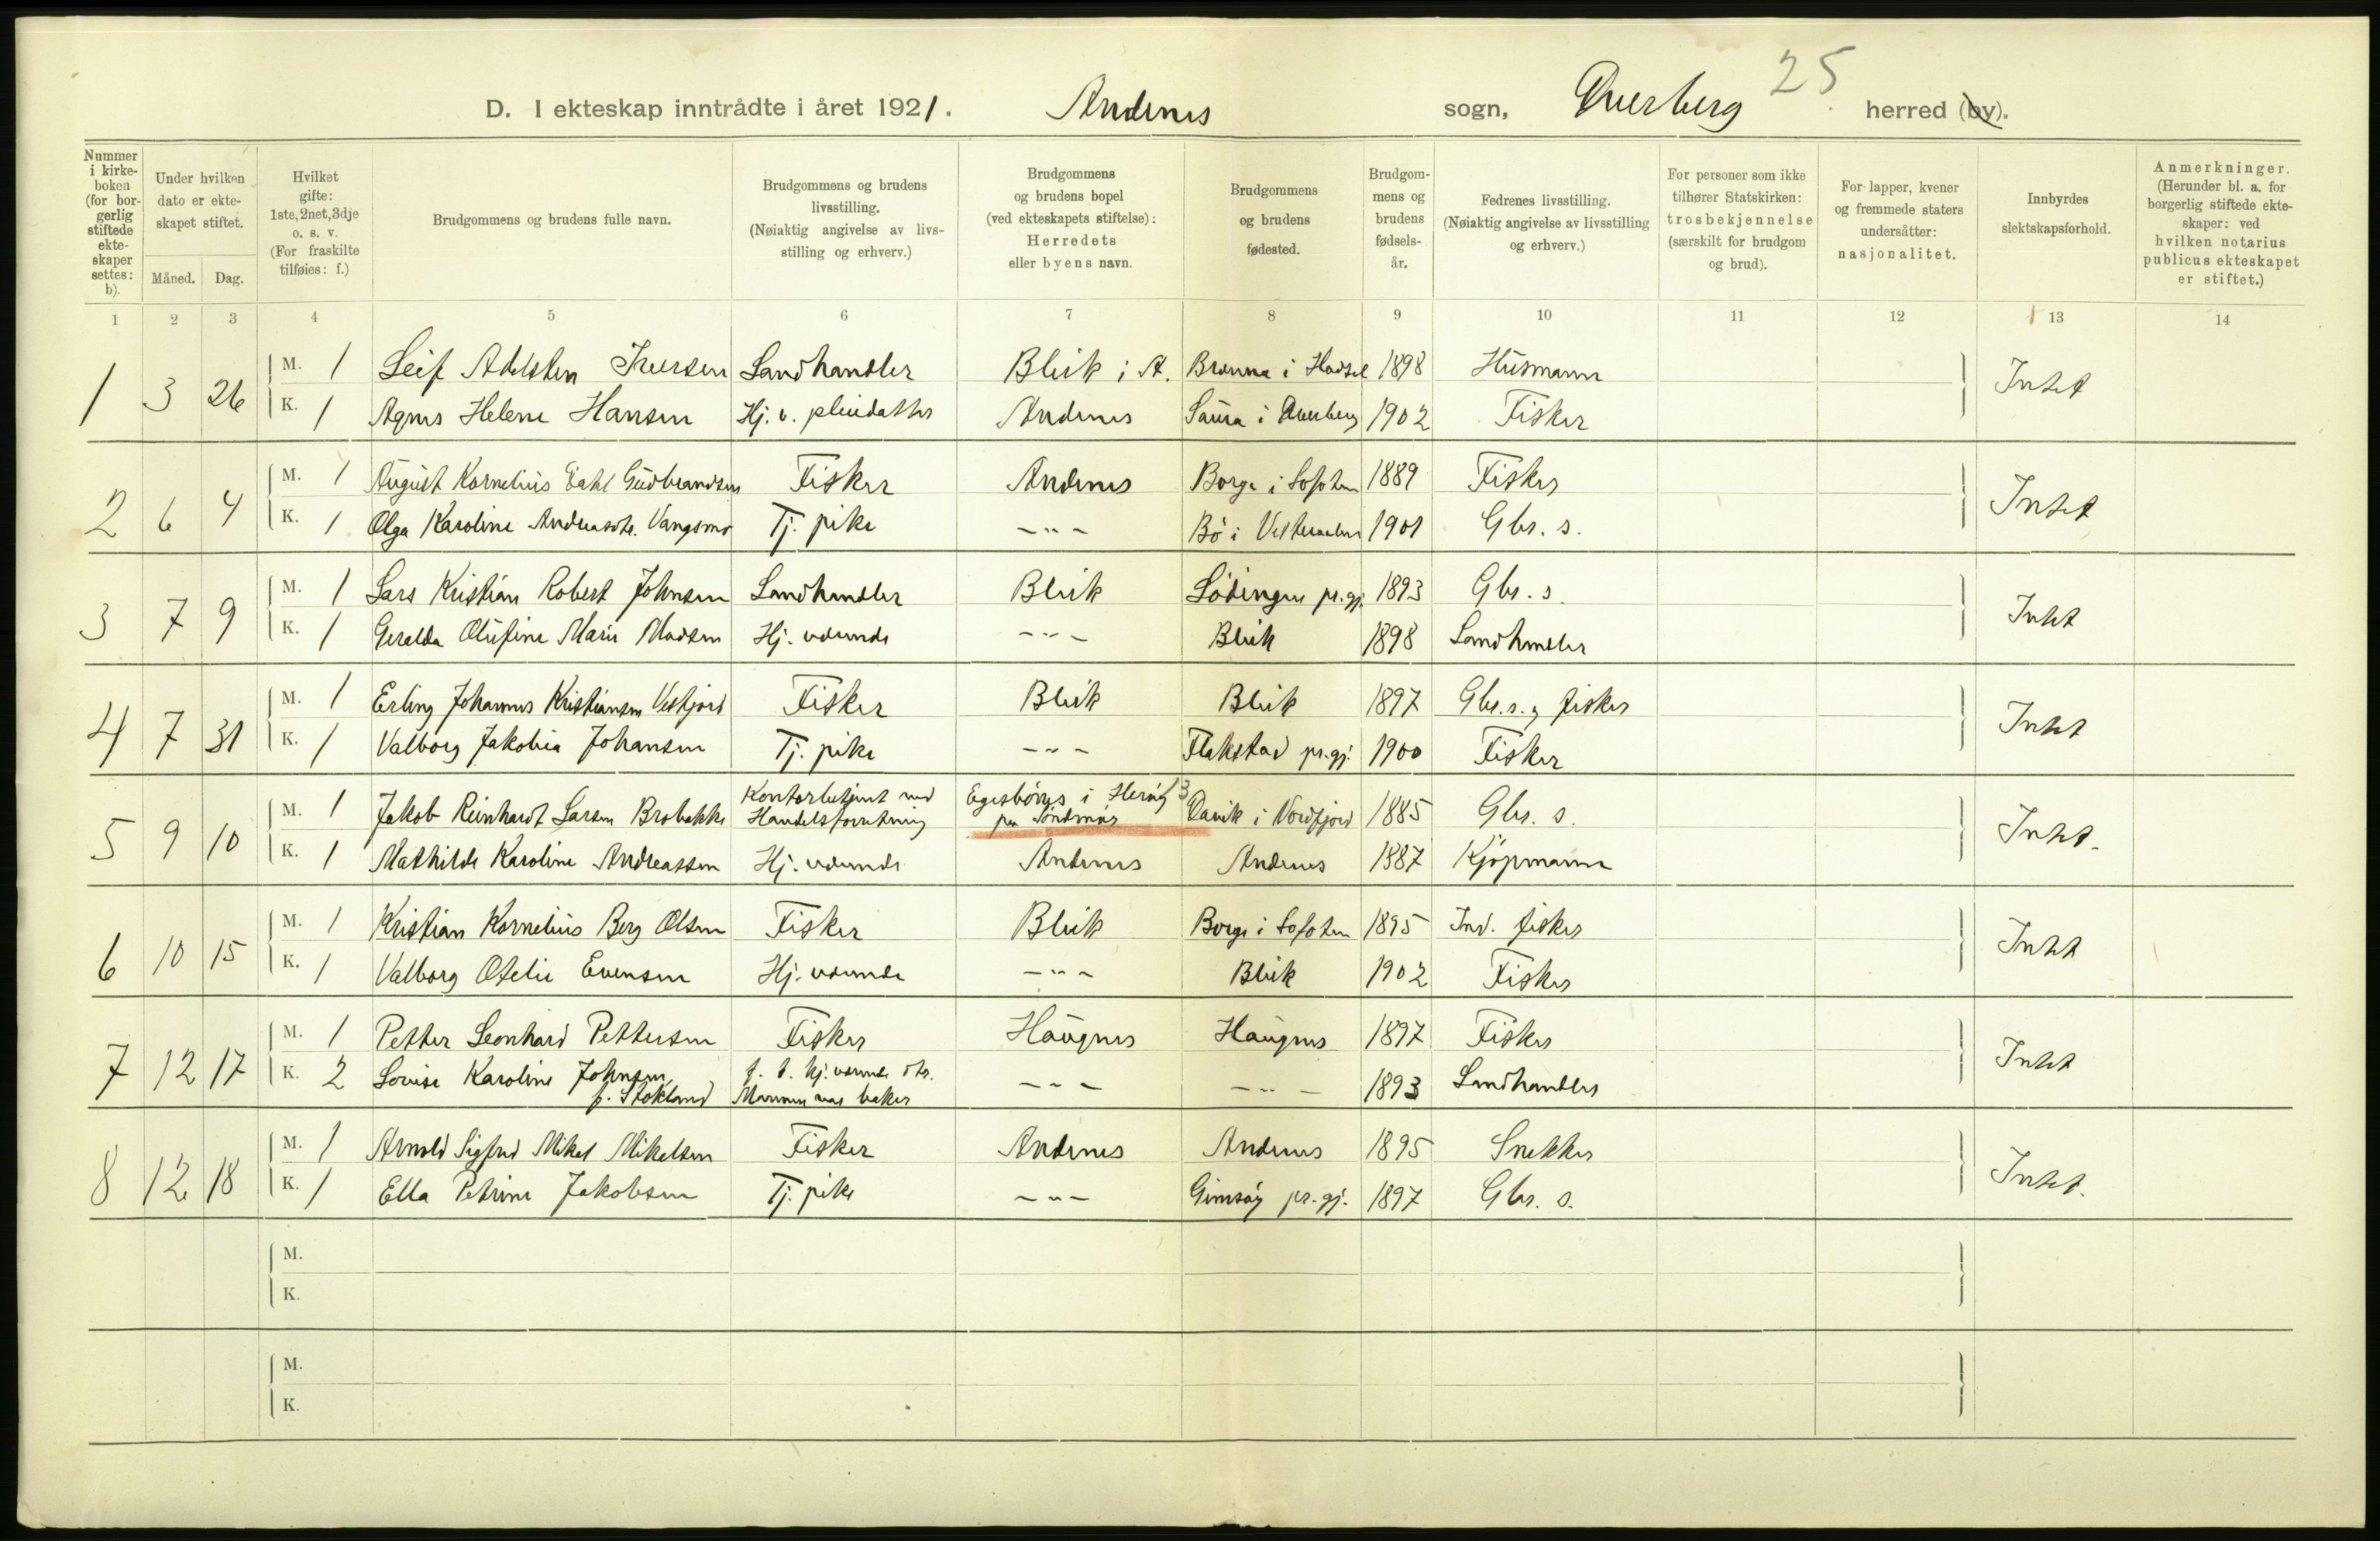 25
D. I ekteskap inntrådte i året 1921. Andenes sogn, Dverberg herred (by).
Nummer i kirkeboken (for borgerlig stiftede ekteskaper settes: b).
Under hvilken dato er ekteskapet stiftet.
Måned. Dag.
Hvilket gifte: 1ste, 2net, 3dje o. s. v. (For fraskilte tilføies: f.)
Brudgommens og brudens fulle navn.
Brudgommens og brudens livsstilling. (Nøiaktig angivelse av livsstilling og erhverv.)
Brudgommens og brudens bopel (ved ekteskapets stiftelse): Herredets eller byens navn.
Brudgommens og brudens fødested.
Brudgommens og brudens fødselsår.
Fedrenes livsstilling. (Nøiaktig angivelse av livsstilling og erhverv.)
For personer som ikke tilhører Statskirken: trosbekjennelse (særskilt for brudgom og brud).
For lapper, kvener og fremmede staters undersåtter: nasjonalitet.
Innbyrdes slektskapsforhold.
Anmerkninger. (Herunder bl. a. for borgerlig stiftede ekteskaper: ved hvilken notarius publicus ekteskapet er stiftet.)
1 2 3 4 5 6 7 8 9 10 11 12 13 14
1 3 26 M. 1 Leif Adelsten Iversen Landhandler Bleik i A. Brønna i Hadsel 1898 Husmann Intet
K. 1 Agnes Helene Hansen Hj. v. pleiedatter Andenes Saura i Dverberg 1902 Fisker
2 6 4 M. 1 August Kornelius Dahl Gudbrandsen Fisker Andenes Borge i Lofoten 1889 Fisker Intet
K. 1 Olga Karoline Andreasdtr. Vangsmo Tj. pike -"- Bö i Vesteraalen 1901 Gbr. s.
3 7 9 M. 1 Lars Kristian Robert Johnsen Landhandler Bleik Lödingen pr.gj. 1893 Gbr. s. Intet
K. 1 Geralda Olufine Marie Madsen Hj. værende -"- Bleik 1898 Landhandler
4 7 31 M. 1 Erling Johannes Kristiansen Vestfjord Fisker Bleik Bleik 1897 Gbr. s. og fisker Intet
K. 1 Valborg Jakobia Johansen Tj. pike -"- Flakstad pr.gj. 1900 Fisker
5 9 10 M. 1 Jakob Reinhardt Larsen Brobakke Kontorbetjent ved Handelsforretning Egesbönes i Heröy paa Söndmör 13 Davik i Nordfjord 1885 Gbr. s. Intet.
K. 1 Mathilde Karoline Andreassen Hj. værende Andenes Andenes 1887 Kjöpmann
6 10 15 M. 1 Kristian Kornelius Berg Olsen Fisker Bleik Borge i Lofoten 1895 Ind. fisker Intet
K. 1 Valborg Otelie Evensen Hj. værende -"- Bleik 1902 Fisker
7 12 17 M. 1 Petter Leonhard Pettersen Fisker Haugnes Haugnes 1897 Fisker Intet
K. 2 Lovise Karoline Johnsen f. Stokland f. t. hj. værende dtr. Mannen var baker -"- -"- 1893 Landhandler
8 12 18 M. 1 Arnold Sigfred Mikal Mikelsen Fisker Andenes Andenes 1895 Snekker Intet.
K. 1 Ella Petrine Jakobsen Tj. pike -"- Gimsöy pr. gj. 1897 Gbr. s.
M.
K.
M.
K.